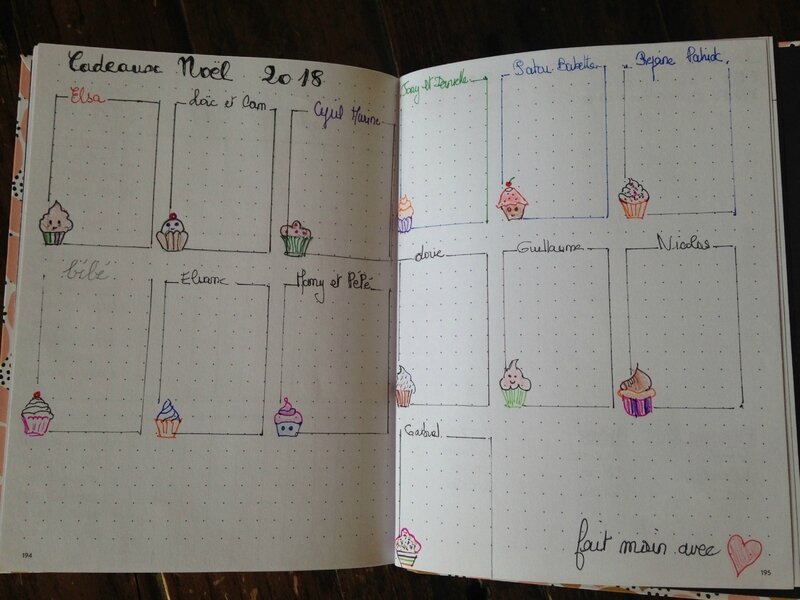 Cadeaux Noël 2018
Elsa
Loïc et Cam
Cyril Marine
bébé
Eliane
Mamy et PéPé
194
Tony et Danielle
Babette
Patrick
Guillaume
Nicolas
Gabriel
fait main avec
195